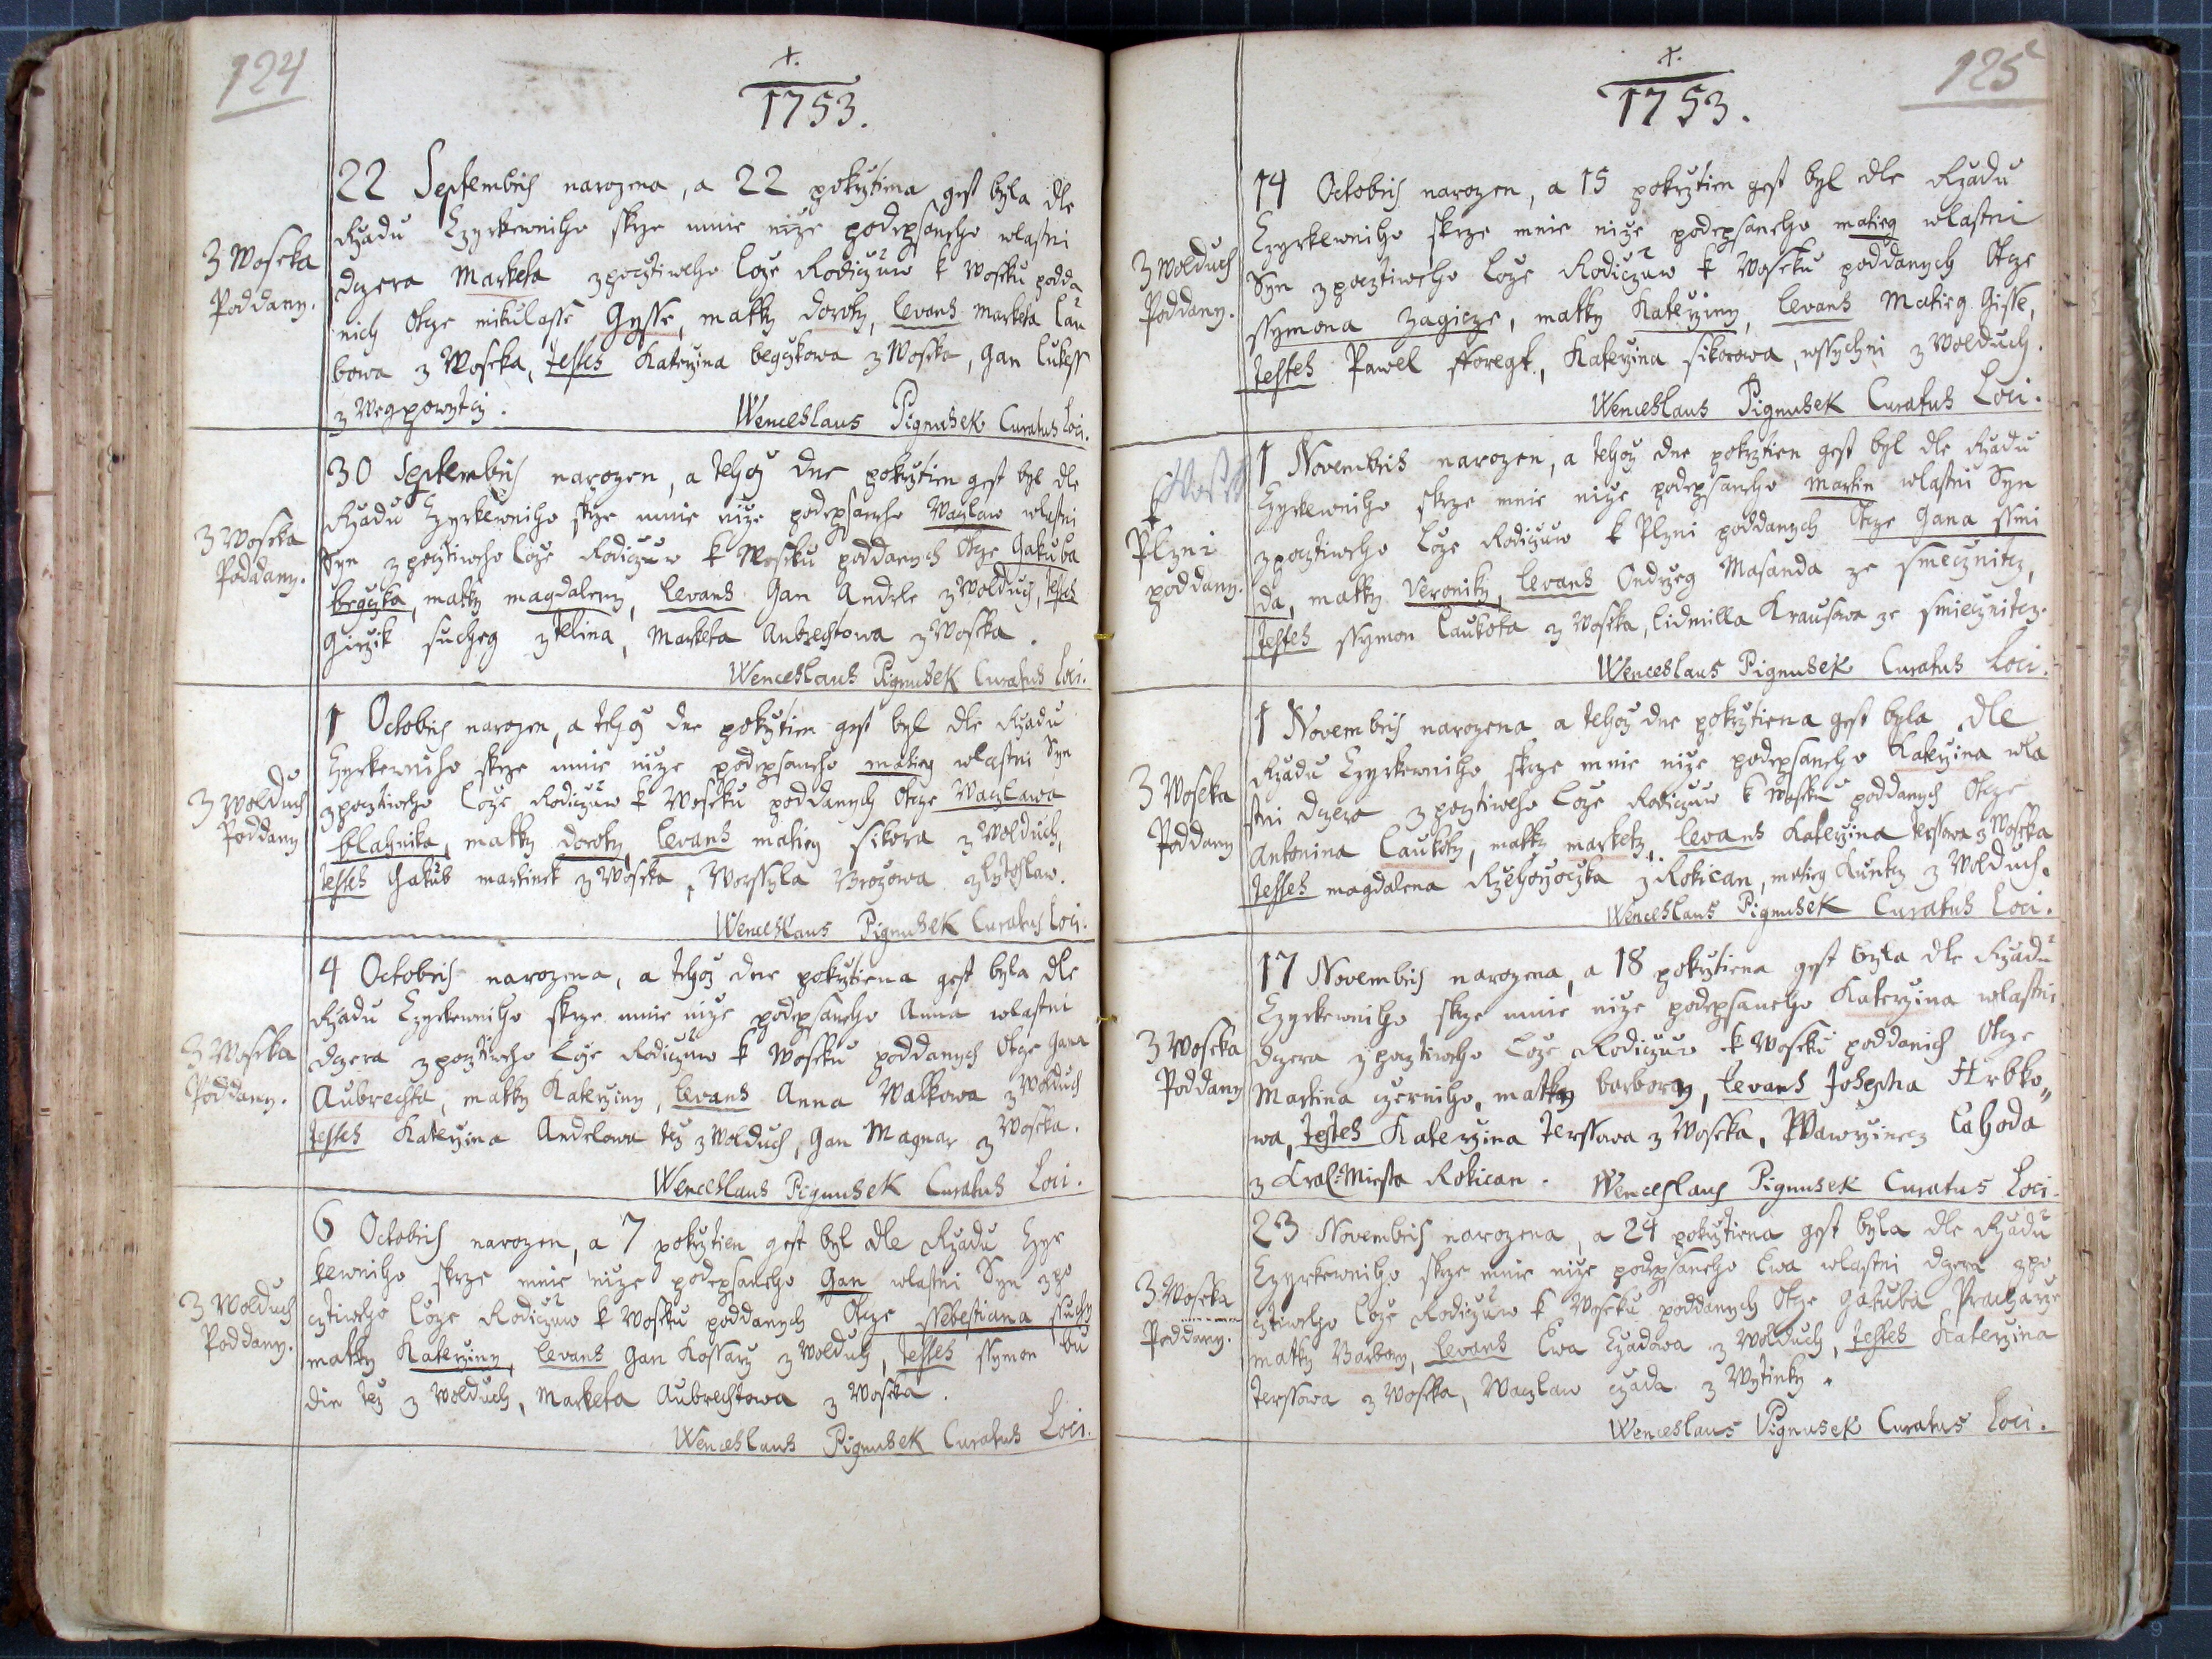 124
+.
1753.
Z Woseka
Poddany.
22 Septembris narozena, a 22 pokrztiena gest byla dle
Rzadu Czyrkewniho skrze mnie nize podepsaneho wlastni
dczera Marketa z pocztiweho loze Rodiczuw k Woseku podda
nich Otcze mikulasse Gysse, matky doroty, levans Marketa lau
bowa z Woseka, testes Katerzina begczkowa z Woseka, Gan Lukess
z Wegpowrtczi.
Wenceslaus Pigmusek Curatus Loci.
Z Woseka
Poddany.
30 Septembris narozen, a tehoz dne pokrztien gest byl dle
Rzadu Czyrkewniho skrze mnie nize podepsaneho Waczlaw wlastni
Syn z pocztiweho loze Rodiczuw k Woseku poddanych Otcze Gakuba
begczka, matky magdaleny, levans Gan Andrle z Wolduch, testes
Girzik suchey z telina, Marketa Aubrechtowa z Woseka.
Wenceslaus Pigmusek Curatus Loci.
Z Wolduch
Poddany
1 Octobris narozen, a tehoz dne pokrztien gest byl dle Rzadu
Czyrkewniho skrze mnie nize podepsaneho matieg wlastni Syn
z pocztiweho loze Rodiczuw k Woseku poddanych Otcze Waczlawa
blahnika, matky doroty, levans matieg sikora z Wolduch,
testes Gakub martinek z Woseka, Worssyla Brozowa
Wenceslaus Pigmusek Curatus Loci.
Z Woseka
Poddany.
4 Octobris narozena, a tehoz dne pokrztiena gest byla dle
Rzadu Czyrkewniho skrze mnie nize podepsaneho Anna wlastni
dczera z pocztiweho loze Rodiczuw k Woseku poddanych Otcze Gana
Aubrechta, matky Katerziny, levans Anna Walkowa z Wolduch
testes Katerzina Andrlowa tez z Wolduch, Gan Magnar z Woseka.
Wenceslaus Pigmusek Curatus Loci.
Z Wolduch
Poddany.
6 Octobris narozen, a 7 pokrztien gest byl dle Rzadu Czyr
kewniho skrze mnie nize podepsaneho Gan wlastni Syn z po
cztiweho loze Rodiczuw k Woseku poddanych Otcze ssebestiana suchy
matky Katerziny, levans Gan Kossarz z Wolduch, testes ssymon bu
din tez z Wolduch, Marketa Aubrechtowa z Woseka.
Wenceslaus Pigmusek Curatus Loci.
125
+.
1753.
Z Wolduch
Poddany.
14 Octobris narozen, a 15 pokrztien gest byl dle Rzadu
Czyrkewniho skrze mnie nize podepsaneho matieg wlastni
Syn z pocztiweho loze Rodiczuw k Woseku poddanych Otcze
ssymona Zagicze, matky Katerziny, levans Matieg Gisse,
testes Pawel fforegt, Katerzina sikorowa, wssychni z Wolduch.
Wenceslaus Pigmusek Curatus Loci.
k
Plzni
poddany.
1 Novembris narozen, a tehoz dne pokrztien gest byl dle Rzadu
Czyrkewniho skrze mnie nize podepsaneho Martin wlastni Syn
z pocztiweho loze Rodiczuw k Plzni poddanych Otcze Gana ssmi
da, matky Veroniky, levans Ondrzeg Masanda ze Smecznitcz,
testes ssymon Laukota z Woseka, lidmilla Krausowa ze smiecznitcz.
Wenceslaus Pigmusek Curatus Loci.
Z Woseka
Poddany
1 Novembris narozena a tehoz dne pokrztiena gest byla dle
Rzadu Czyrkewniho skrze mnie nize podepsaneho Katerzina wla
stni dczera z pocztiweho loze Rodiczuw k Woseku poddanych Otcze
Antonina Laukoty, matky markety, levans Katerzina terssowa z Woseka
testes magdalena Rzehorzoczka z Rokican, matieg Kuntcz z Wolduch.
Wenceslaus Pigmusek Curatus Loci.
Z Woseka
Poddany
17 Novembris narozena, a 18 pokrztiena gest byla dle Rzadu
Czyrkewniho skrze mnie nize podepsaneho Katerzina wlastni
dczera z pocztiweho loze Rodiczuw k Woseku poddanich Otcze
Martina czerniho, matky barbory, levans Josepha Hrbko„
wa, testes Katerzina terssowa z Woseka, Wawrzinecz Lahoda
z Kral: Miesta Rokican. Wenceslaus Pigmusek Curatus Loci.
Z Woseka
Poddany.
23 Novembris narozena, a 24 pokrztiena gest byla dle Rzadu
Czyrkewniho skrze mnie nize podepsaneho Ewa wlastni dczera z po
cztiweho loze Rodiczuw k Woseku poddanych Otcze Gakuba Praczarze
matky Barbory, levans Ewa Czadowa z Wolduch, testes Katerzina
terssowa z Woseka, Waczlaw czada z Wytinky.
Wenceslaus Pigmusek Curatus Loci.